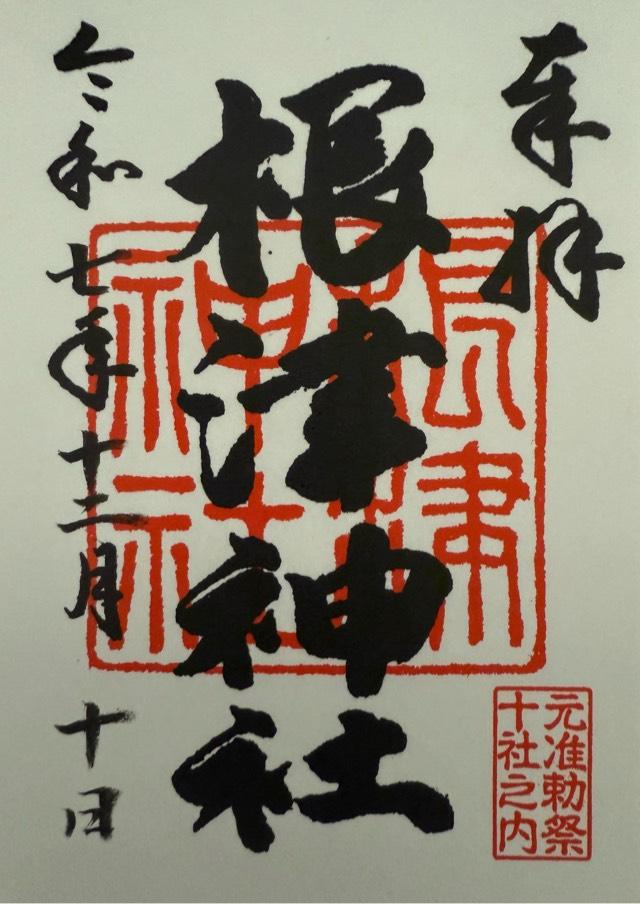 奉拝
根津神社
根津神社
令和七年十二月十日
元准勅祭
十社之内